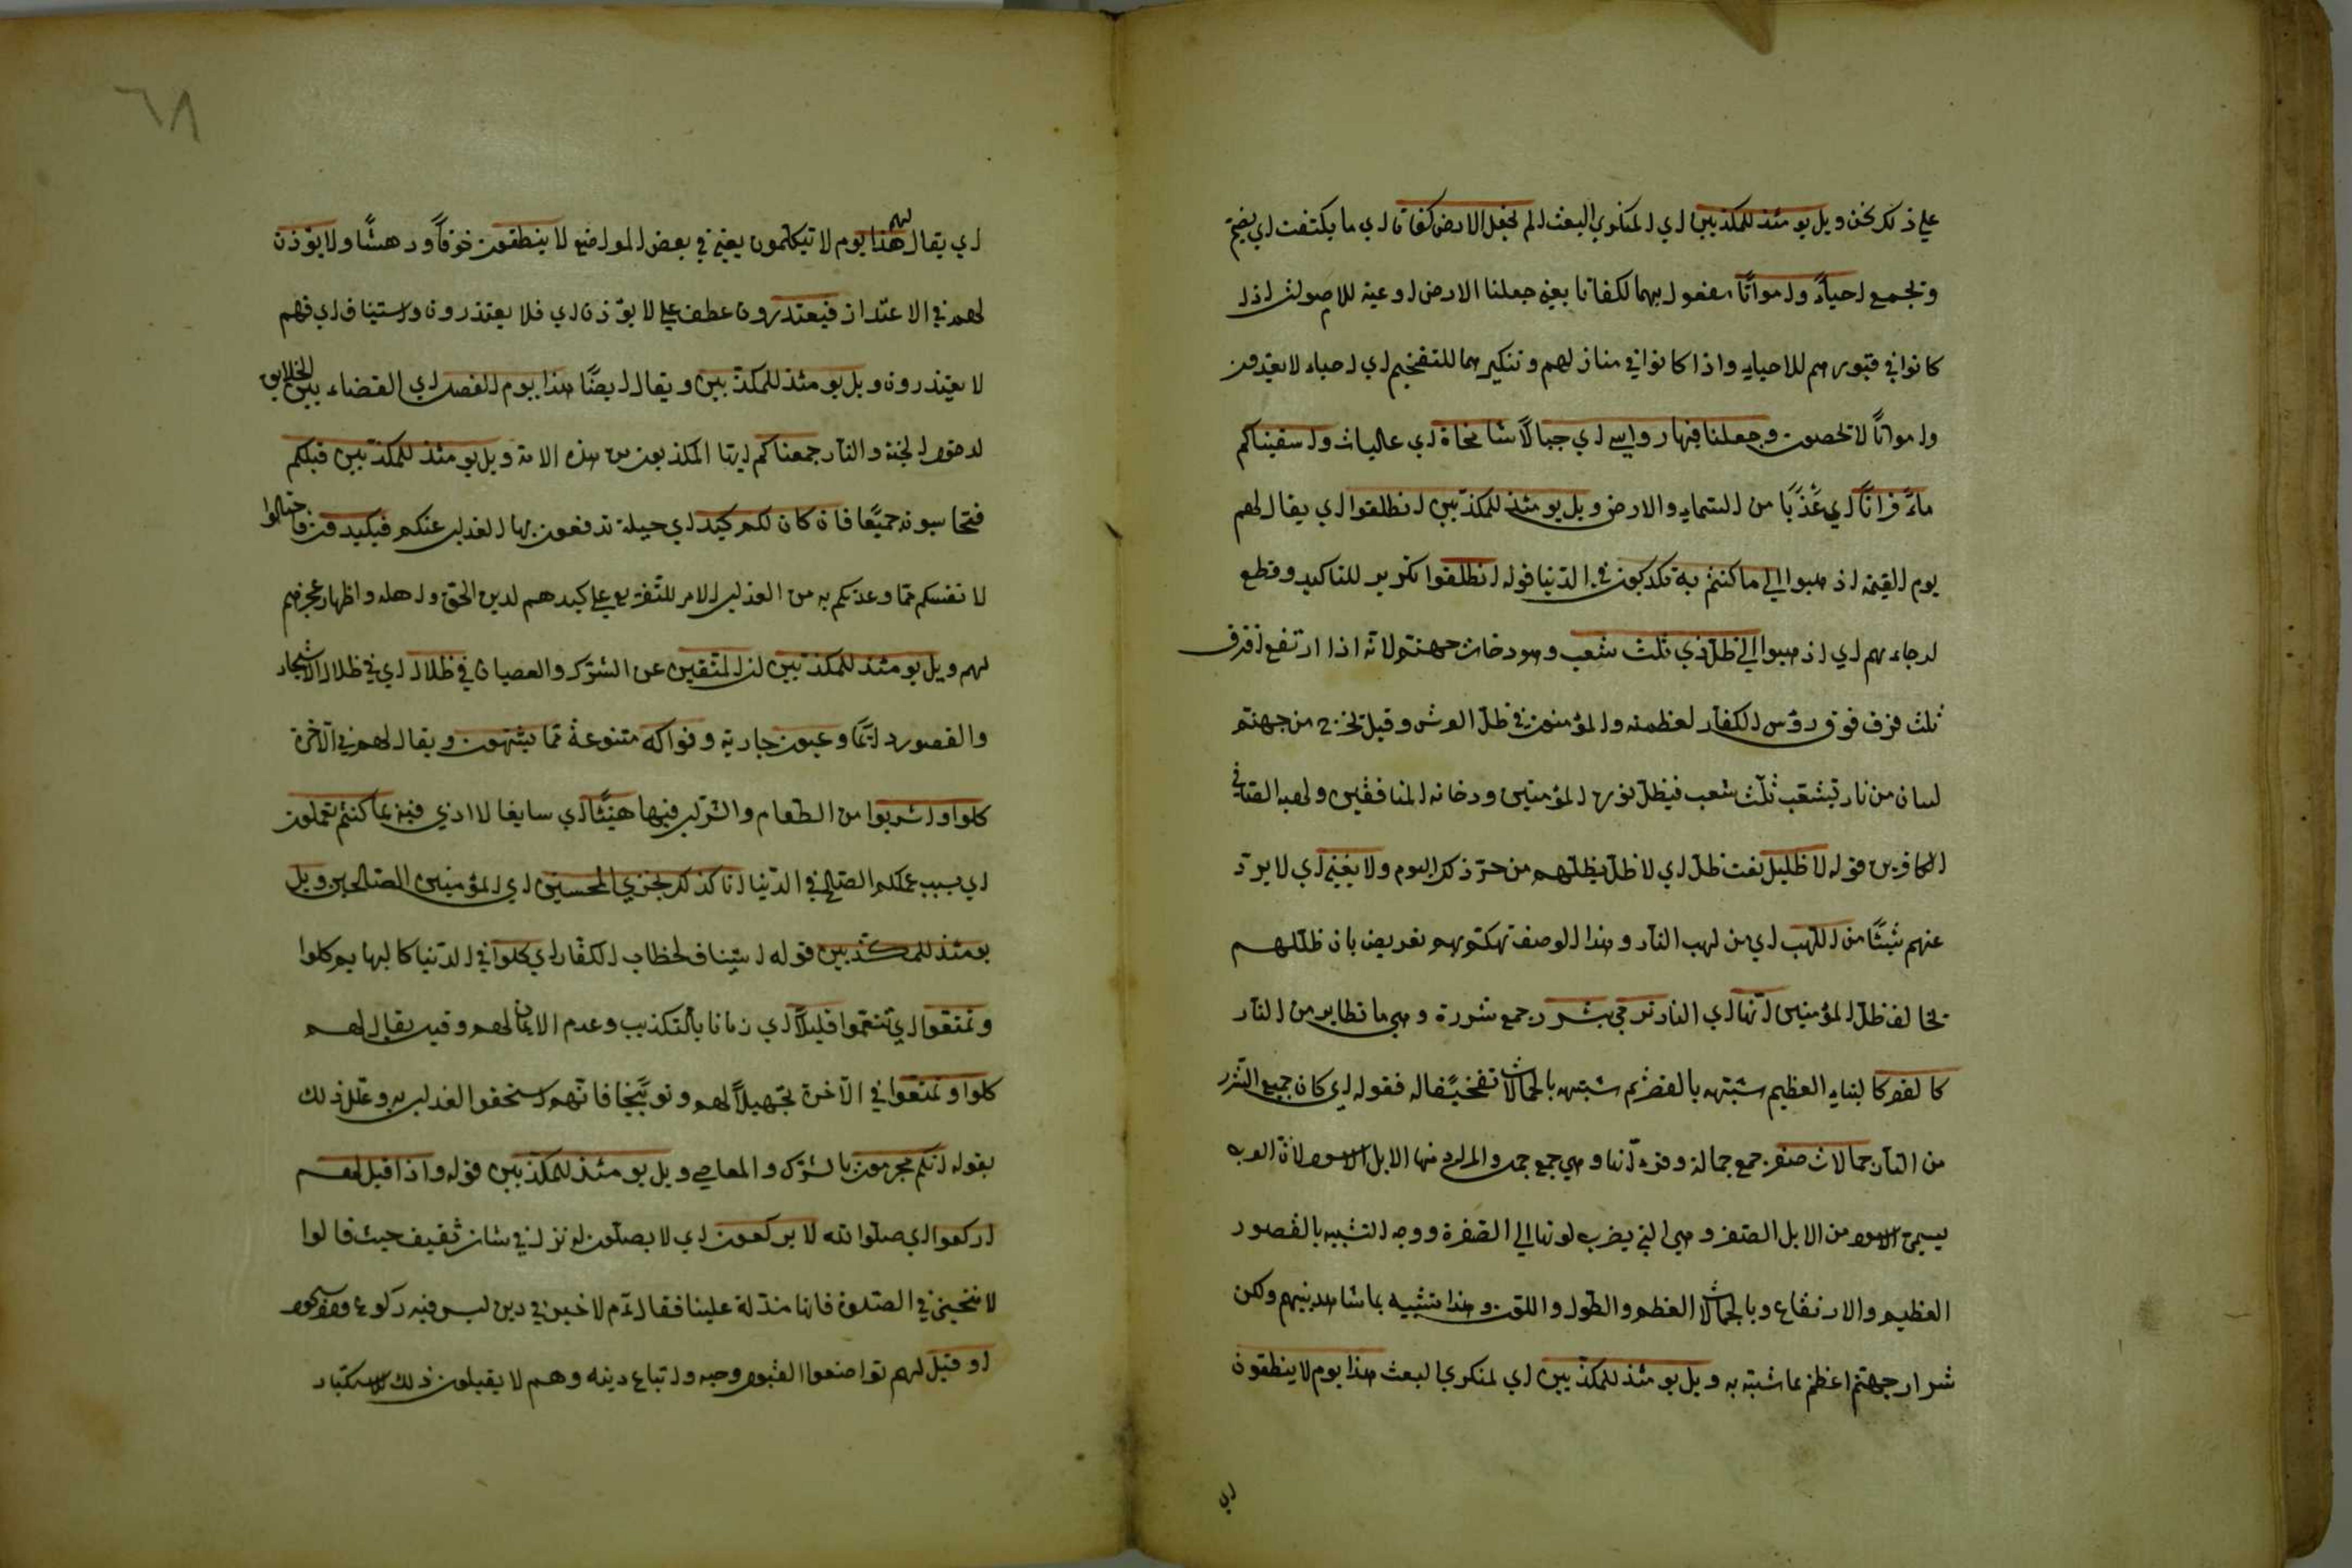 علي ذلك نحن ويل يومئذ للمكذبين اي المنكري البعث الم نجعل الارض كفاتا اي ما يكتفت اي يضم
وتجمع احياءً وامواتًا مفعول بهما لكفاتا يعني جعلنا الارض اوعية للاموات اذا
كانوا في قبورهم للاحياء واذا كانوا في منازلهم وتنكيرهما للتفخيم اي احياء لا يعدون
وامواتًا لا تحصون وجعلنا فيها رواسي اي جبالًا شامخاة اي عاليات واسقيناكم
ماءً فراتًا اي عَذْبًا من السماء والارض ويل يومئذ للمكذبين انطلقوا اي يقال لهم
يوم القيمة اذهبوا الي ما كنتم به تكذبون في الدنيا قوله انطلقوا تكرير للتاكيد وقطع
ارجاءهم اي اذهبوا الي ظل ذي ثلث شعب وهو دخان جهنم لانه اذا ارتفع افترق
ثلث فرق فوق رؤس الكفار لعظمته والمؤمنون في ظل العرش وقيل تخرج من جهنم
لسان من نار تتشعب ثلث شعب فيظل نورها المؤمنين ودخانه المنافقين ولهبه القتا في
الكافرين قوله لا ظليل نعت ظل اي لا ظل يظلهم من حر ذلك اليوم ولا يغني اي لا يرد
عنهم شيئًا من اللهب اي من لهب النار وهذا الوصف تهكم بهم تعريض بان ظللهم
تخالف ظل المؤمنين انها اي النار ترمي بشرر جمع شررة وهي ما تطاير من النار
كالقصر كالبناء العظيم شبهه بالقصر ثم شبهه بالجمالات تفخيمًا له فقوله اي كان جميع الشرر
من النار جمالات صفر جمع جمالة وهي جمع جمل والمراد منها الابل الاسود لان العرب
يسمي الاسود من الابل الصفر وهي التي يضرب لونها الي الصفرة ووجه التشبيه بالقصور
العظيم والارتفاع وبالجمالات العظم والطول واللون وهذا تشبيه بما شاهد بينهم ولكن
شرار جهنم اعظم مما شبه به ويل يومئذ للمكذبين اي لمنكري البعث هذا يوم لا ينطقون
اي
٦٨
اي يقال لهم هذا يوم لا تتكلمون يعني في بعض المواضع لا ينطقون خوفًا ودهشًا ولا يؤذن
لهم في الاعتذار فيعتذرون عطف علي لا يؤذن اي فلا يعتذرون واستيناف اي فهم
لا يعتذرون ويل يومئذ للمكذبين ويقال ايضًا هذا يوم الفصل اي القضاء بين الخلايق
لدخول الجنة والنار جمعناكم ايها المكذبون من هذه الامة ويل يومئذ للمكذبين قبلكم
فتحاسبونه جميعًا فان كان لكم كيد اي حيلة تدفعون بها العذاب عنكم فكيدون فاحتالوا
لانفسكم مما وعدتكم به من العذاب الامر للتقريع علي كيدهم لدين الحق واهله واظهار عجزهم
لهم ويل يومئذ للمكذبين ان المتقين عن الشرك والعصيان في ظلال اي في ظلال الاشجار
والقصور دايمًا وعيون جارية وفواكه متنوعة مما يشتهون ويقال لهم في الآخرة
كلوا واشربوا من الطعام والشراب فيها هنيئًا اي سايغا لا اذي فيه بما كنتم تعملون
اي بسبب عملكم الصالح في الدنيا انا كذلك نجزي المحسنين اي المؤمنين الصالحين ويل
يومئذ للمكذبين قوله استيناف لخطاب الكفار اي كلوا في الدنيا كالبهايم كلوا
وتمتعوا اي تنعموا قليلًا اي زمانا بالتكذيب وعدم الايمان لهم وقيل يقال لهم
كلوا وتمتعوا في الآخرة تجهيلًا لهم وتوبيخا فانهم استحقوا العذاب به وعلل ذلك
بقوله انكم مجرمون بالشرك والمعاصي ويل يومئذ للمكذبين قوله واذا قيل لهم
اركعوا اي صلوا لله لا يركعون اي لا يصلون له نزل في شان ثقيف حيث قالوا
لا ننحني في الصلوة فانها مذلة علينا فقال عم لا خير في دين ليس فيه ركوع وسجود
او قيل لهم تواضعوا لقبول وحيه واتباع دينه وهم لا يقبلون ذلك لاستكبار